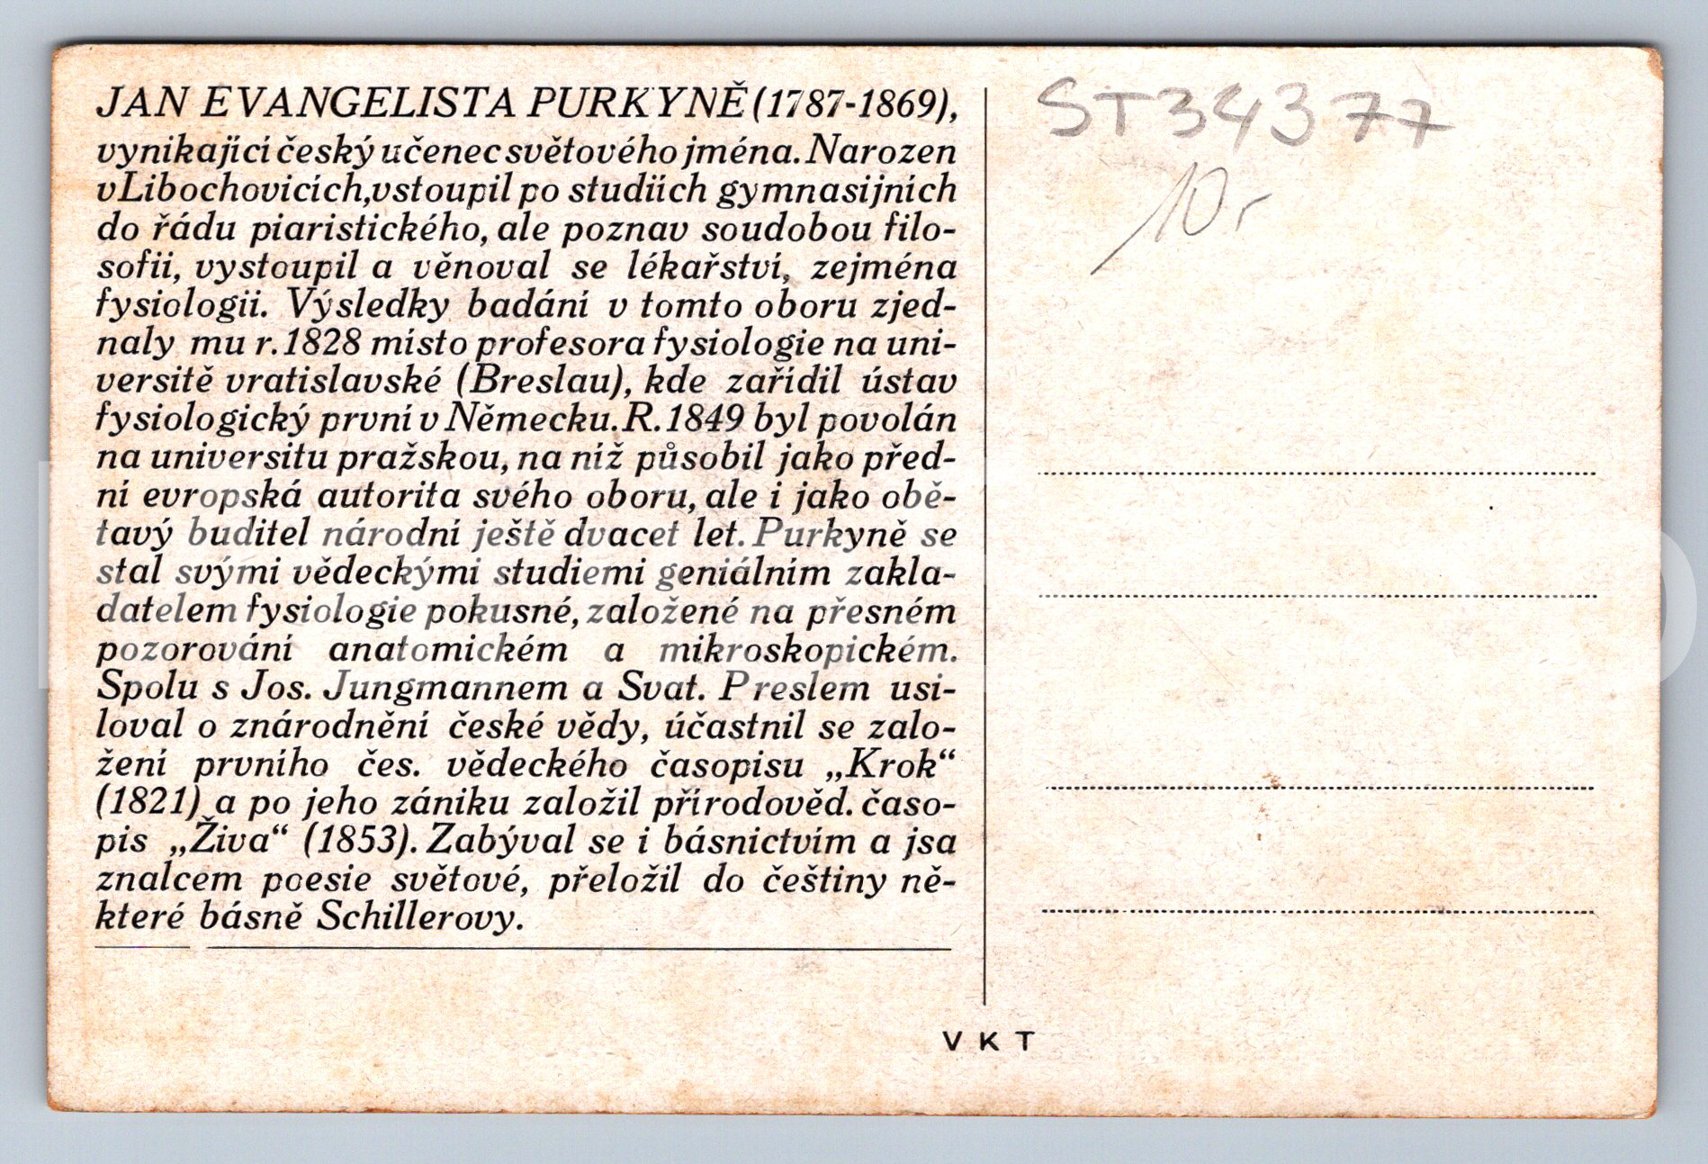 JAN EVANGELISTA PURKYNĚ (1787-1869),
vynikající český učenec světového jména. Narozen
v Libochovicích, vstoupil po studiích gymnasijních
do řádu piaristického, ale poznav soudobou filo-
sofii, vystoupil a věnoval se lékařství, zejména
fysiologii. Výsledky badání v tomto oboru zjed-
naly mu r. 1828 místo profesora fysiologie na uni-
versitě vratislavské (Breslau), kde zařídil ústav
fysiologický první v Německu. R. 1849 byl povolán
na universitu pražskou, na níž působil jako před-
ní evropská autorita svého oboru, ale i jako obě-
tavý buditel národní ještě dvacet let. Purkyně se
stal svými vědeckými studiemi geniálním zakla-
datelem fysiologie pokusné, založené na přesném
pozorování anatomickém a mikroskopickém.
Spolu s Jos. Jungmannem a Svat. Preslem usi-
loval o znárodnění české vědy, účastnil se zalo-
žení prvního čes. vědeckého časopisu „Krok“
(1821) a po jeho zániku založil přírodověd. časo-
pis „Živa“ (1853). Zabýval se i básnictvím a jsa
znalcem poesie světové, přeložil do češtiny ně-
které básně Schillerovy.
ST34377
10,-
V K T